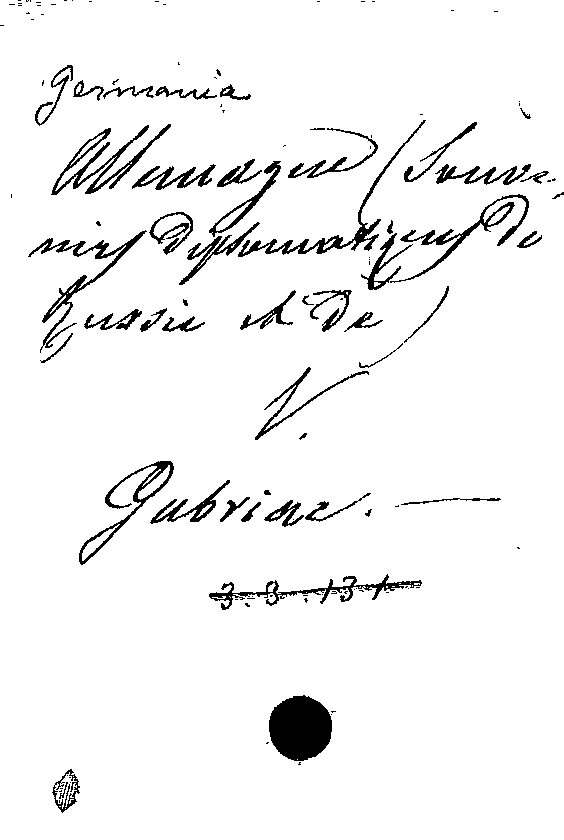 Germania
Allemagne (Souve-
nirs diplomatiques de
Russie et de)
V.
Gabriac. —
3.8.131